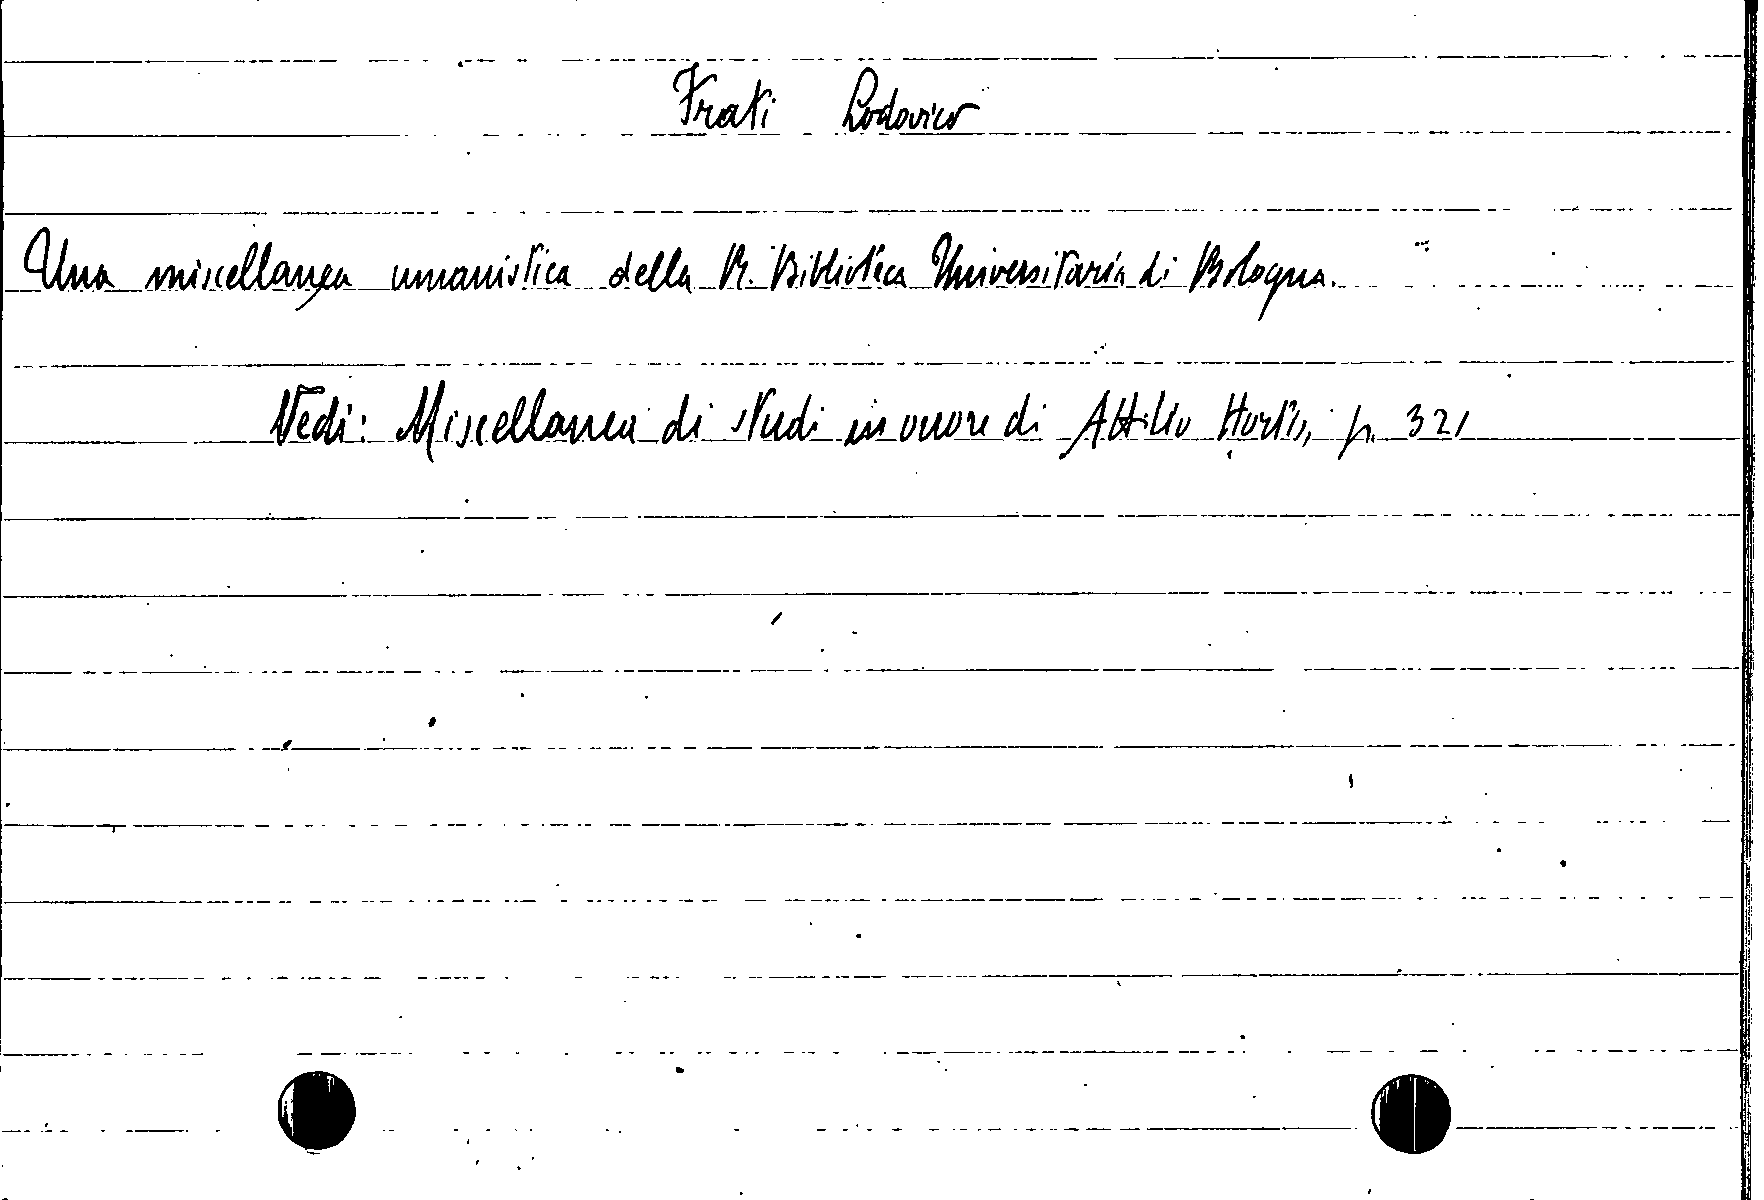 Frati Lodovico
Una miscellanea umanistica della R. Biblioteca Universitaria di Bologna.
Vedi: Miscellanea di studi in onore di Attilio Hortis, p. 321